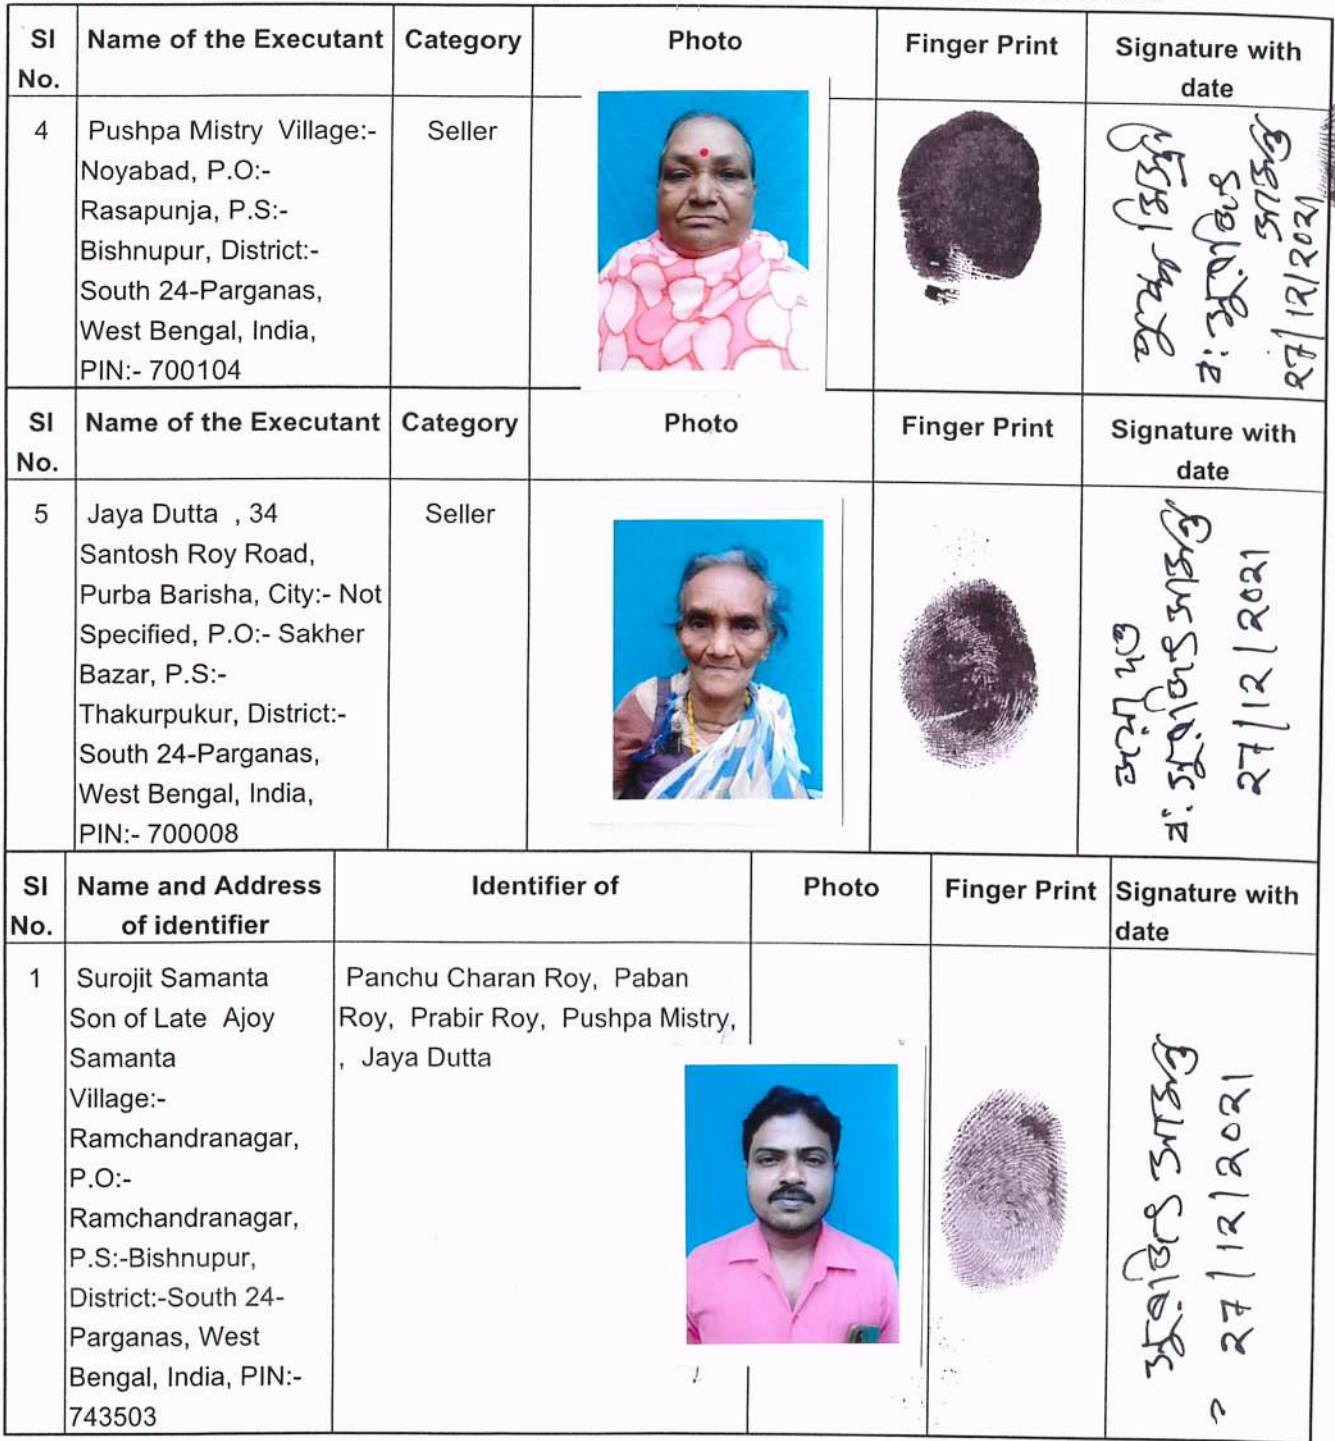 Sl No. Name of the Executant Category Photo Finger Print Signature with date
4 Pushpa Mistry Village:- Seller
Noyabad, P.O:-
Rasapunja, P.S:-
Bishnupur, District:-
South 24-Parganas,
West Bengal, India,
PIN:- 700104
পুষ্প মিস্ত্রী
ব: সুরজিৎ
সামন্ত
২৭/১২/২০২১
Sl No. Name of the Executant Category Photo Finger Print Signature with date
5 Jaya Dutta , 34 Seller
Santosh Roy Road,
Purba Barisha, City:- Not
Specified, P.O:- Sakher
Bazar, P.S:-
Thakurpukur, District:-
South 24-Parganas,
West Bengal, India,
PIN:- 700008
জয়া দত্ত
ব: সুরজিৎ সামন্ত
২৭/১২/২০২১
Sl No. Name and Address of identifier Identifier of Photo Finger Print Signature with date
1 Surojit Samanta
Son of Late Ajoy
Samanta
Village:-
Ramchandranagar,
P.O:-
Ramchandranagar,
P.S:-Bishnupur,
District:-South 24-
Parganas, West
Bengal, India, PIN:-
743503
Panchu Charan Roy, Paban
Roy, Prabir Roy, Pushpa Mistry,
, Jaya Dutta
সুরজিৎ সামন্ত
২৭/১২/২০২১